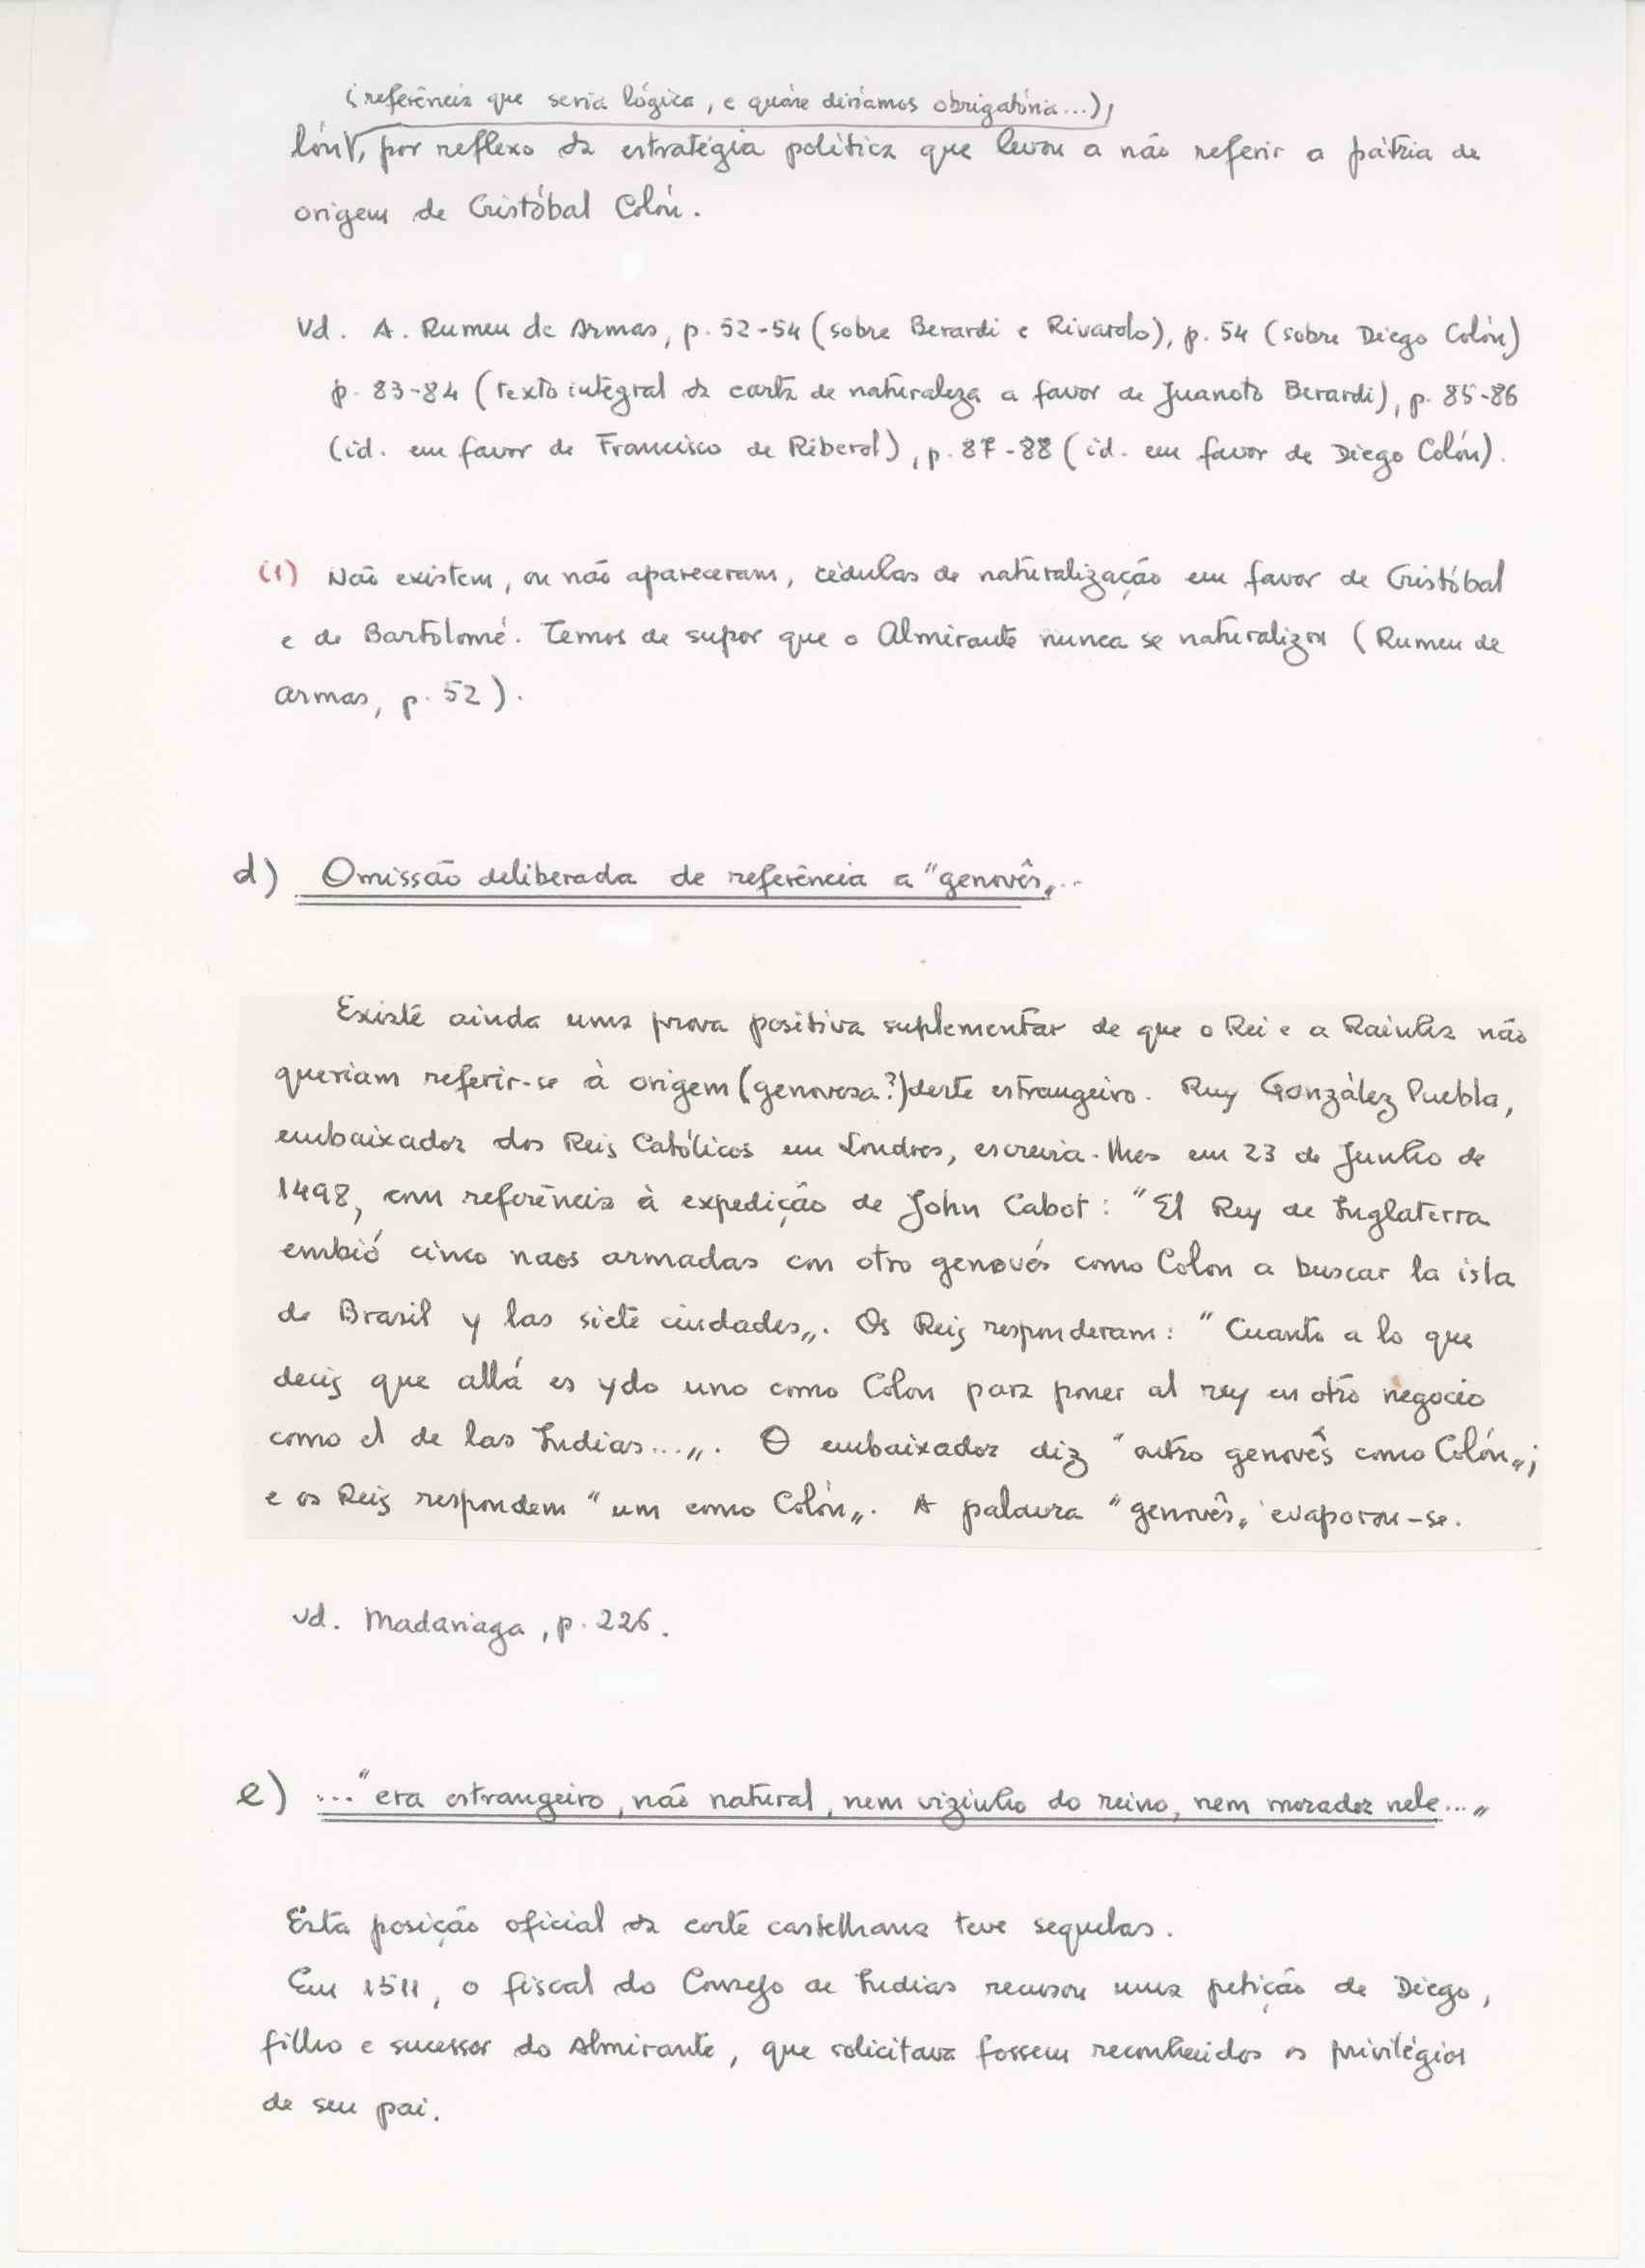 (referência que seria lógica, e quáse diríamos obrigatória...),
lón, por reflexo da estratégia política que levou a não referir a pátria de
origem de Cristóbal Colón.
Vd. A. Rumeu de Armas, p. 52-54 (sobre Berardi e Rivarolo), p. 54 (sobre Diego Colón)
p. 83-84 (texto integral da carta de naturaleza a favor de Juanoto Berardi), p. 85-86
(id. em favor de Francisco de Riberol), p. 87-88 (id. em favor de Diego Colón).
(1) Não existem, ou não apareceram, cédulas de naturalização em favor de Cristóbal
e de Bartolomé. Temos de supor que o Almirante nunca se naturalizou (Rumeu de
Armas, p. 52).
d) Omissão deliberada de referência a "genovês„...
Existe ainda uma prova positiva suplementar de que o Rei e a Rainha não
queriam referir-se à origem (genovesa?) deste estrangeiro. Ruy González Puebla,
embaixador dos Reis Católicos em Londres, escrevia-lhes em 23 de Junho de
1498, com referência à expedição de John Cabot: "El Rey de Inglaterra
embió cinco naos armadas con otro genovés como Colon a buscar la isla
de Brasil y las siete ciudades„. Os Reis responderam: "Cuanto a lo que
decis que allá es ydo uno como Colon para poner al rey en otro negocio
como el de las Indias...„. O embaixador diz "outro genovês como Colón„;
e os Reis respondem "um como Colón„. A palavra "genovês„ evaporou-se.
Vd. Madariaga, p. 226.
e) ..."era estrangeiro, não natural, nem vizinho do reino, nem morador nele...„
Esta posição oficial da corte castelhana teve sequelas.
Em 1511, o fiscal do Consejo de Indias recusou uma petição de Diego,
filho e sucessor do Almirante, que solicitava fossem reconhecidos os privilégios
de seu pai.